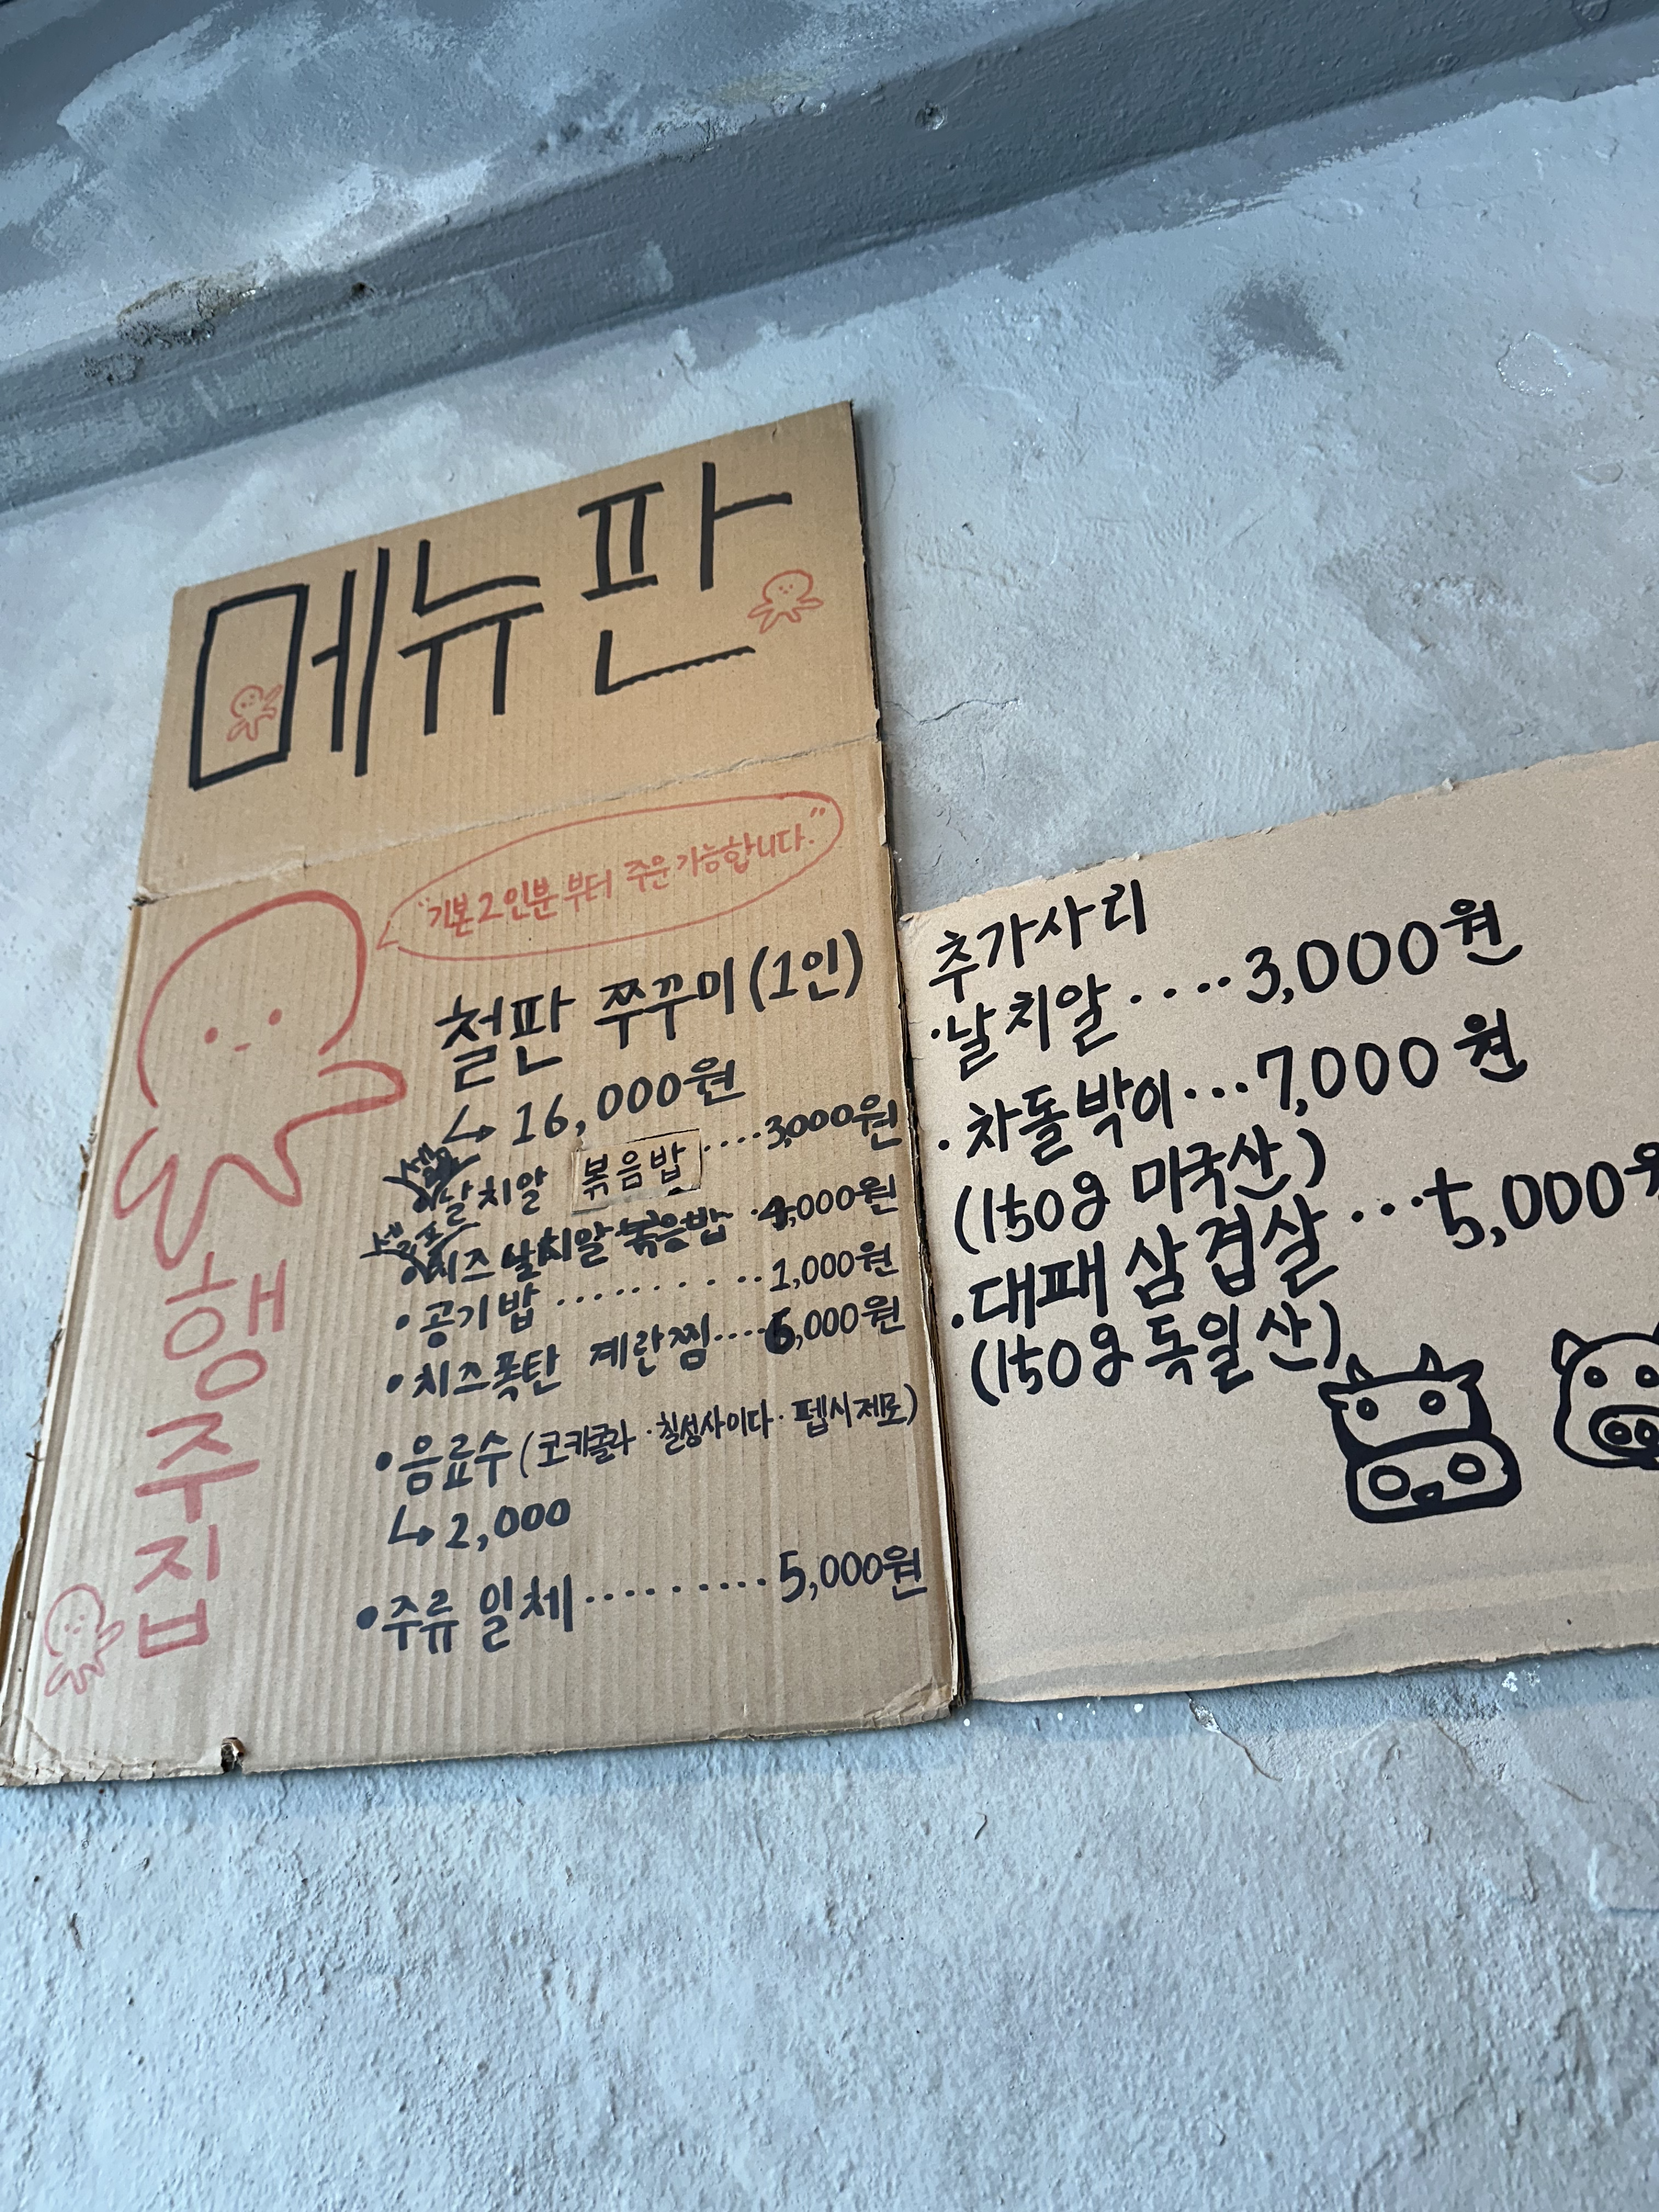 메뉴판
"기본2인분 부터 주문가능합니다."
철판 쭈꾸미(1인)
↳ 16,000원
셀프 날치알 볶음밥 ····3,000원
셀프 치즈 날치알 볶음밥 ·4,000원
• 공기밥 ·········1,000원
• 치즈폭탄 계란찜····6,000원
• 음료수(코카콜라·칠성사이다·펩시제로)
↳ 2,000
• 주류 일체·········5,000원
행주집
추가사리
·날치알····3,000원
·차돌박이···7,000원
(150g 미국산)
·대패 삼겹살···5,000원
(150g 독일산)